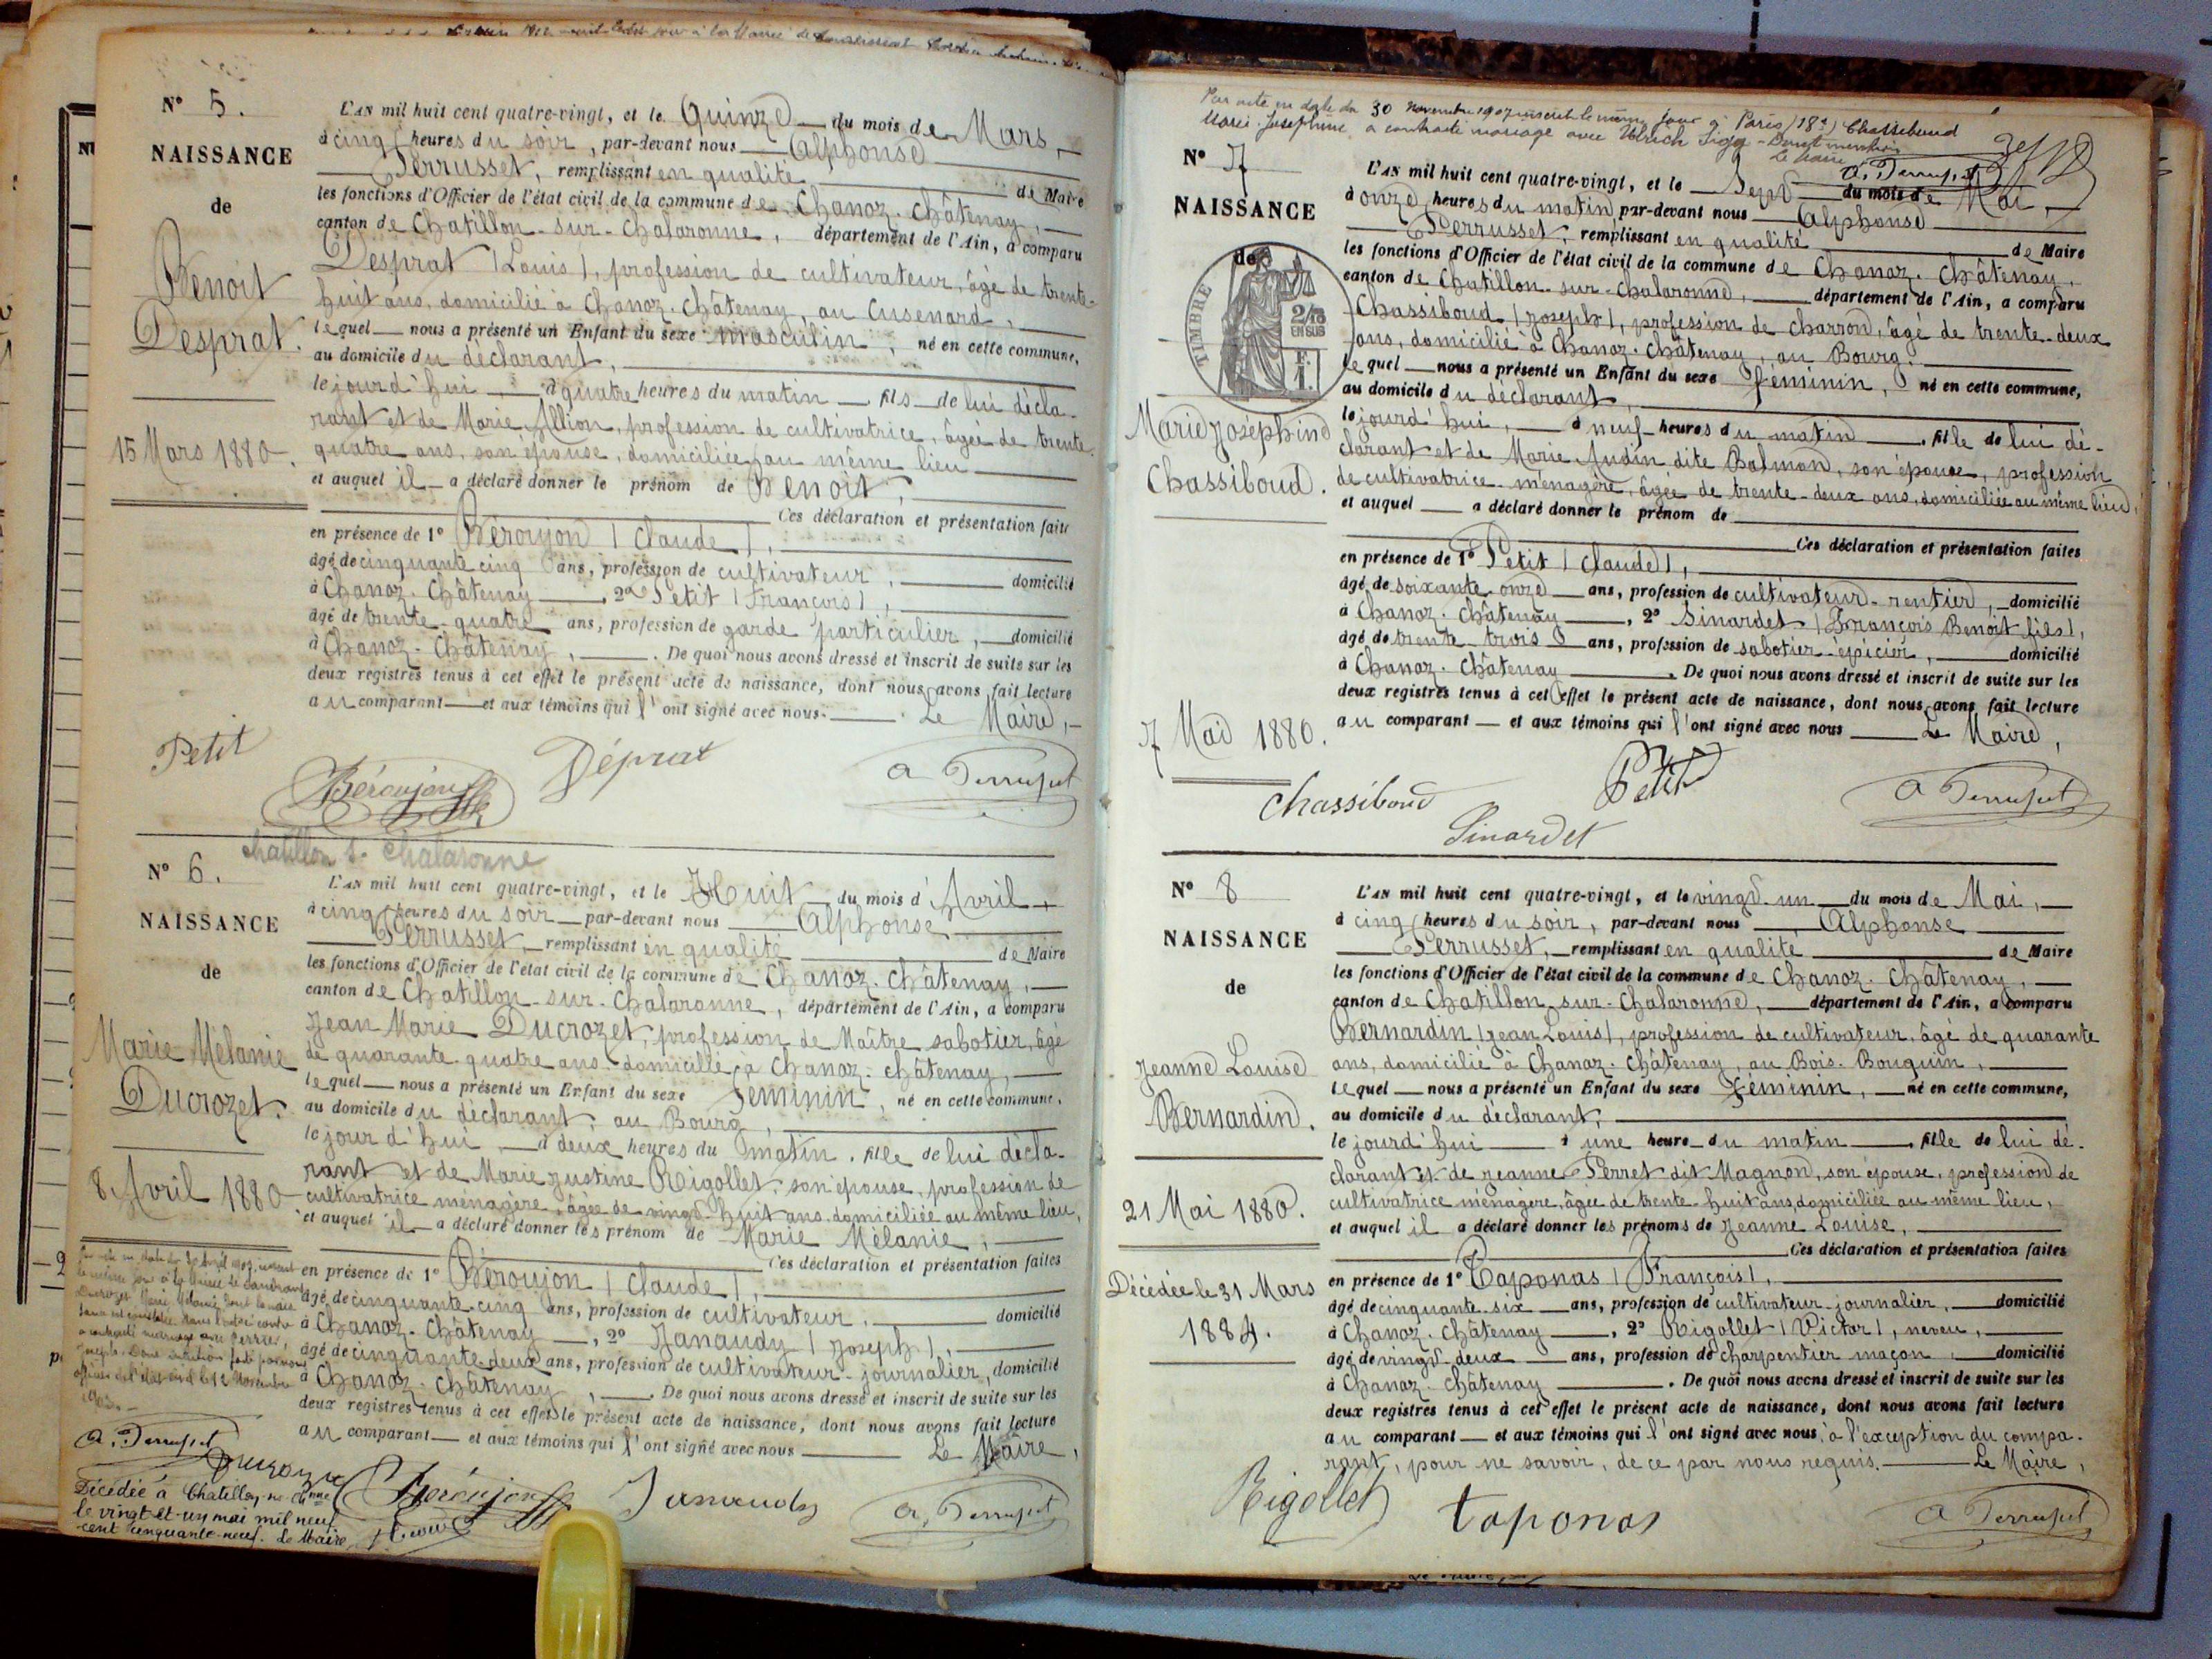 N° 5.
NAISSANCE
de
Benoit
Desprat.
15 Mars 1880.
L'AN mil huit cent quatre-vingt, et le Quinze du mois de Mars,
à cinq heures du soir, par-devant nous Alphonse
Perrusset, remplissant en qualité de Maire
les fonctions d'Officier de l'état civil de la commune de Chanoz-Châtenay,
canton de Chatillon-sur-Chalaronne, département de l'Ain, a comparu
Desprat (Louis), profession de cultivateur, âgé de trente-
huit ans, domicilié à Chanoz-Châtenay, au Cusenard,
lequel nous a présenté un Enfant du sexe masculin, né en cette commune,
au domicile du déclarant,
le jourd'hui à quatre heures du matin fils de lui décla-
rant et de Marie Allion, profession de cultivatrice, âgée de trente-
quatre ans, son épouse, domiciliée au même lieu
et auquel il a déclaré donner le prénom de Benoit,
Ces déclaration et présentation faite
en présence de 1° Béroujon (Claude),
âgé de cinquante cinq ans, profession de cultivateur, domicilié
à Chanoz-Châtenay, 2° Petit (François),
âgé de trente-quatre ans, profession de garde particulier, domicilié
à Chanoz-Châtenay, . De quoi nous avons dressé et inscrit de suite sur les
deux registres tenus à cet effet le présent acte de naissance, dont nous avons fait lecture
au comparant et aux témoins qui l'ont signé avec nous. Le Maire,
Petit
Béroujon
Déprat
A Perrusset
chatillon s. chalaronne
N° 6.
NAISSANCE
de
Marie Mélanie
Ducrozet.
8 Avril 1880
L'AN mil huit cent quatre-vingt, et le Huit du mois d'Avril
à cinq heures du soir par-devant nous Alphonse
Perrusset, remplissant en qualité de Maire
les fonctions d'Officier de l'état civil de la commune de Chanoz-Châtenay,
canton de Chatillon-sur-Chalaronne, département de l'Ain, a comparu
Jean Marie Ducrozet, profession de Maître sabotier, âgé
de quarante-quatre ans domicilié à Chanoz-Châtenay,
lequel nous a présenté un Enfant du sexe Féminin, né en cette commune,
au domicile du déclarant, au Bourg,
le jourd'hui à deux heures du matin, fille de lui décla-
rant et de Marie Justine Rigollet, son épouse, profession de
cultivatrice ménagère, âgée de vingt-huit ans, domiciliée au même lieu,
et auquel il a déclaré donner les prénom de Marie Mélanie,
Ces déclaration et présentation faites
en présence de 1° Béroujon (Claude),
âgé de cinquante-cinq ans, profession de cultivateur, domicilié
à Chanoz-Châtenay, 2° Janaudy (Joseph),
âgé de cinquante-deux ans, profession de cultivateur-journalier, domicilié
à Chanoz-Châtenay, . De quoi nous avons dressé et inscrit de suite sur les
deux registres tenus à cet effet le présent acte de naissance, dont nous avons fait lecture
au comparant et aux témoins qui l'ont signé avec nous Le Maire,
A. Perrusset
Ducrozet
Béroujon
Janaudy
A. Perrusset
Décédée à Chatillon
le vingt-et-un mai mil neuf
cent cinquante-neuf. Le Maire,
Par acte en date du 30 Novembre 1907 inscrit le même jour à Paris (18e) Chassiboud
Marie Josephine a contracté mariage avec Ulrich
Le Maire
A. Perrusset
N° 7
NAISSANCE
de
TIMBRE
2/10
EN SUS
Marie Joséphine
Chassiboud.
7 Mai 1880.
L'AN mil huit cent quatre-vingt, et le Sept du mois de Mai,
à onze heures du matin par-devant nous Alphonse
Perrusset, remplissant en qualité de Maire
les fonctions d'Officier de l'état civil de la commune de Chanoz-Châtenay,
canton de Chatillon-sur-Chalaronne, département de l'Ain, a comparu
Chassiboud (Joseph), profession de charron, âgé de trente-deux
ans, domicilié à Chanoz-Châtenay, au Bourg.
lequel nous a présenté un Enfant du sexe féminin, né en cette commune,
au domicile du déclarant,
le jourd'hui, à neuf heures du matin, fille de lui dé-
clarant et de Marie Audin dite Balmon, son épouse, profession
de cultivatrice-ménagère, âgée de trente-deux ans, domiciliée au même lieu,
et auquel a déclaré donner le prénom de
Ces déclaration et présentation faites
en présence de 1° Petit (Claude),
âgé de soixante-onze ans, profession de cultivateur-rentier, domicilié
à Chanoz-Châtenay, 2° Sinardet (François Benoit fils),
âgé de trente-trois ans, profession de sabotier-épicier, domicilié
à Chanoz-Châtenay. De quoi nous avons dressé et inscrit de suite sur les
deux registres tenus à cet effet le présent acte de naissance, dont nous avons fait lecture
au comparant et aux témoins qui l'ont signé avec nous Le Maire,
Chassiboud
Petit
Sinardet
A Perrusset
N° 8
NAISSANCE
de
Jeanne Louise
Bernardin.
21 Mai 1880.
Décédée le 31 Mars
1884.
L'AN mil huit cent quatre-vingt, et le vingt-un du mois de Mai,
à cinq heures du soir, par-devant nous Alphonse
Perrusset, remplissant en qualité de Maire
les fonctions d'Officier de l'état civil de la commune de Chanoz-Châtenay,
canton de Chatillon-sur-Chalaronne, département de l'Ain, a comparu
Bernardin (Jean Louis), profession de cultivateur, âgé de quarante
ans, domicilié à Chanoz-Châtenay, au Bois-Bouquin,
lequel nous a présenté un Enfant du sexe Féminin, né en cette commune,
au domicile du déclarant,
le jourd'hui à une heure du matin, fille de lui dé-
clarant et de Jeanne Perret dit Magnon, son épouse, profession de
cultivatrice ménagère, âgée de trente-huit ans, domiciliée au même lieu,
et auquel il a déclaré donner les prénoms de Jeanne Louise,
Ces déclaration et présentation faites
en présence de 1° Taponas (François),
âgé de cinquante-six ans, profession de cultivateur-journalier, domicilié
à Chanoz-Châtenay, 2° Rigollet (Victor), neveu,
âgé de vingt-deux ans, profession de charpentier maçon, domicilié
à Chanoz-Châtenay. De quoi nous avons dressé et inscrit de suite sur les
deux registres tenus à cet effet le présent acte de naissance, dont nous avons fait lecture
au comparant et aux témoins qui l'ont signé avec nous, à l'exception du compa-
rant, pour ne savoir, de ce par nous requis. Le Maire,
Rigollet
taponas
A Perrusset